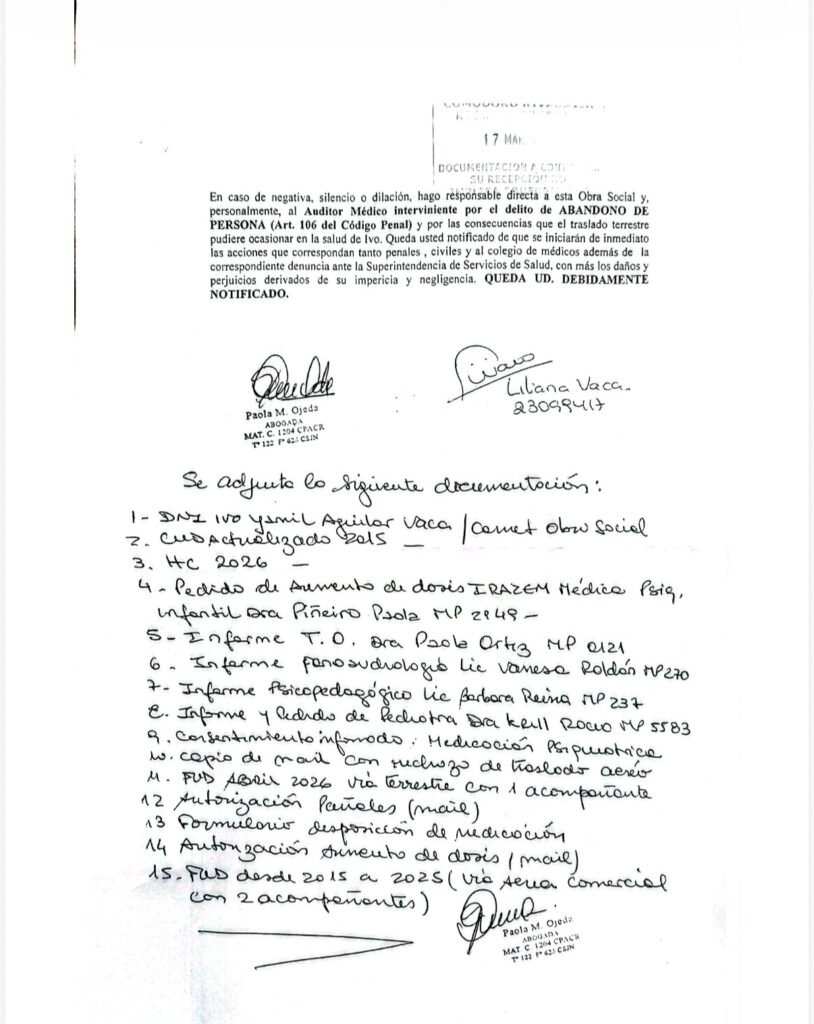 17 MAR
DOCUMENTACION A
SU RECEPCION
En caso de negativa, silencio o dilación, hago responsable directa a esta Obra Social y,
personalmente, al Auditor Médico interviniente por el delito de ABANDONO DE
PERSONA (Art. 106 del Código Penal) y por las consecuencias que el traslado terrestre
pudiere ocasionar en la salud de Ivo. Queda usted notificado de que se iniciarán de inmediato
las acciones que correspondan tanto penales , civiles y al colegio de médicos además de la
correspondiente denuncia ante la Superintendencia de Servicios de Salud, con más los daños y
perjuicios derivados de su impericia y negligencia. QUEDA UD. DEBIDAMENTE
NOTIFICADO.
Paola M. Ojeda
ABOGADA
MAT. C. 1204 CPACR
T° 122 F° 623 CSJN
Liliana Vaca.
23099417
Se adjunta la siguiente documentación:
1- DNI Ivo Yamil Aguilar Vaca / Carnet Obra Social
2. CUD Actualizado 2015 —
3. HC 2026 —
4- Pedido de Aumento de dosis IRAZEM Médica Psiq.
infantil Dra Piñeiro Paola MP 2849 -
5- Informe T.O. Dra Paola Ortiz MP 0121
6. Informe fonoaudiologia Lic Vanesa Roldán MP 270
7- Informe Psicopedagógico Lic Barbara Reina MP 237
8. Informe y Pedido de Pediatra Dra Krull Rocio MP 5583
9. Consentimiento informado: Medicación Psiquiatrica
10. copia de mail con rechazo de traslado aereo
11. FUD ABRIL 2026 via terrestre con 1 acompañante
12 Autorización Pañales (mail)
13 Formulario disposición de medicación
14 Autorización Aumento de dosis (mail)
15. FUD desde 2015 a 2025 (via Aerea comercial
con 2 acompañantes)
Paola M. Ojeda
ABOGADA
MAT. C 1204 CPACR
T° 122 F° 623 CSJN